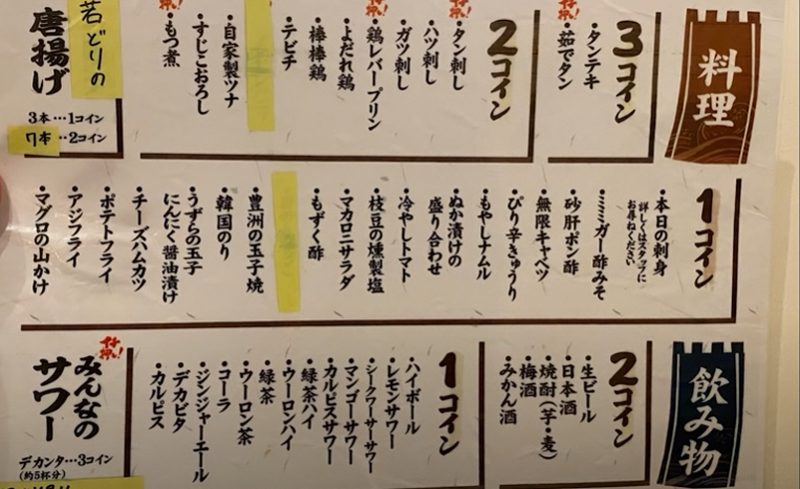 料理
3コイン
・タンテキ
・茹でタン
2コイン
・タン刺し
・ハツ刺し
・ガツ刺し
・鶏レバープリン
・よだれ鶏
・棒棒鶏
・テビチ
・自家製ツナ
・すじこおろし
・もつ煮
若どりの
唐揚げ
3本…1コイン
7本…2コイン
1コイン
・本日の刺身
詳しくはスタッフに
お尋ねください
・ミミガー酢みそ
・砂肝ポン酢
・無限キャベツ
・ぴり辛きゅうり
・もやしナムル
・ぬか漬けの
盛り合わせ
・冷やしトマト
・枝豆の燻製塩
・マカロニサラダ
・もずく酢
・豊洲の玉子焼
・韓国のり
・うずらの玉子
にんにく醤油漬け
・チーズハムカツ
・ポテトフライ
・アジフライ
・マグロの山かけ
飲み物
2コイン
・生ビール
・日本酒
・焼酎(芋・麦)
・梅酒
・みかん酒
1コイン
・ハイボール
・レモンサワー
・シークワーサーサワー
・マンゴーサワー
・カルピスサワー
・緑茶ハイ
・ウーロンハイ
・緑茶
・ウーロン茶
・コーラ
・ジンジャーエール
・デカビタ
・カルピス
みんなの
サワー
デカンタ…3コイン
(約5杯分)